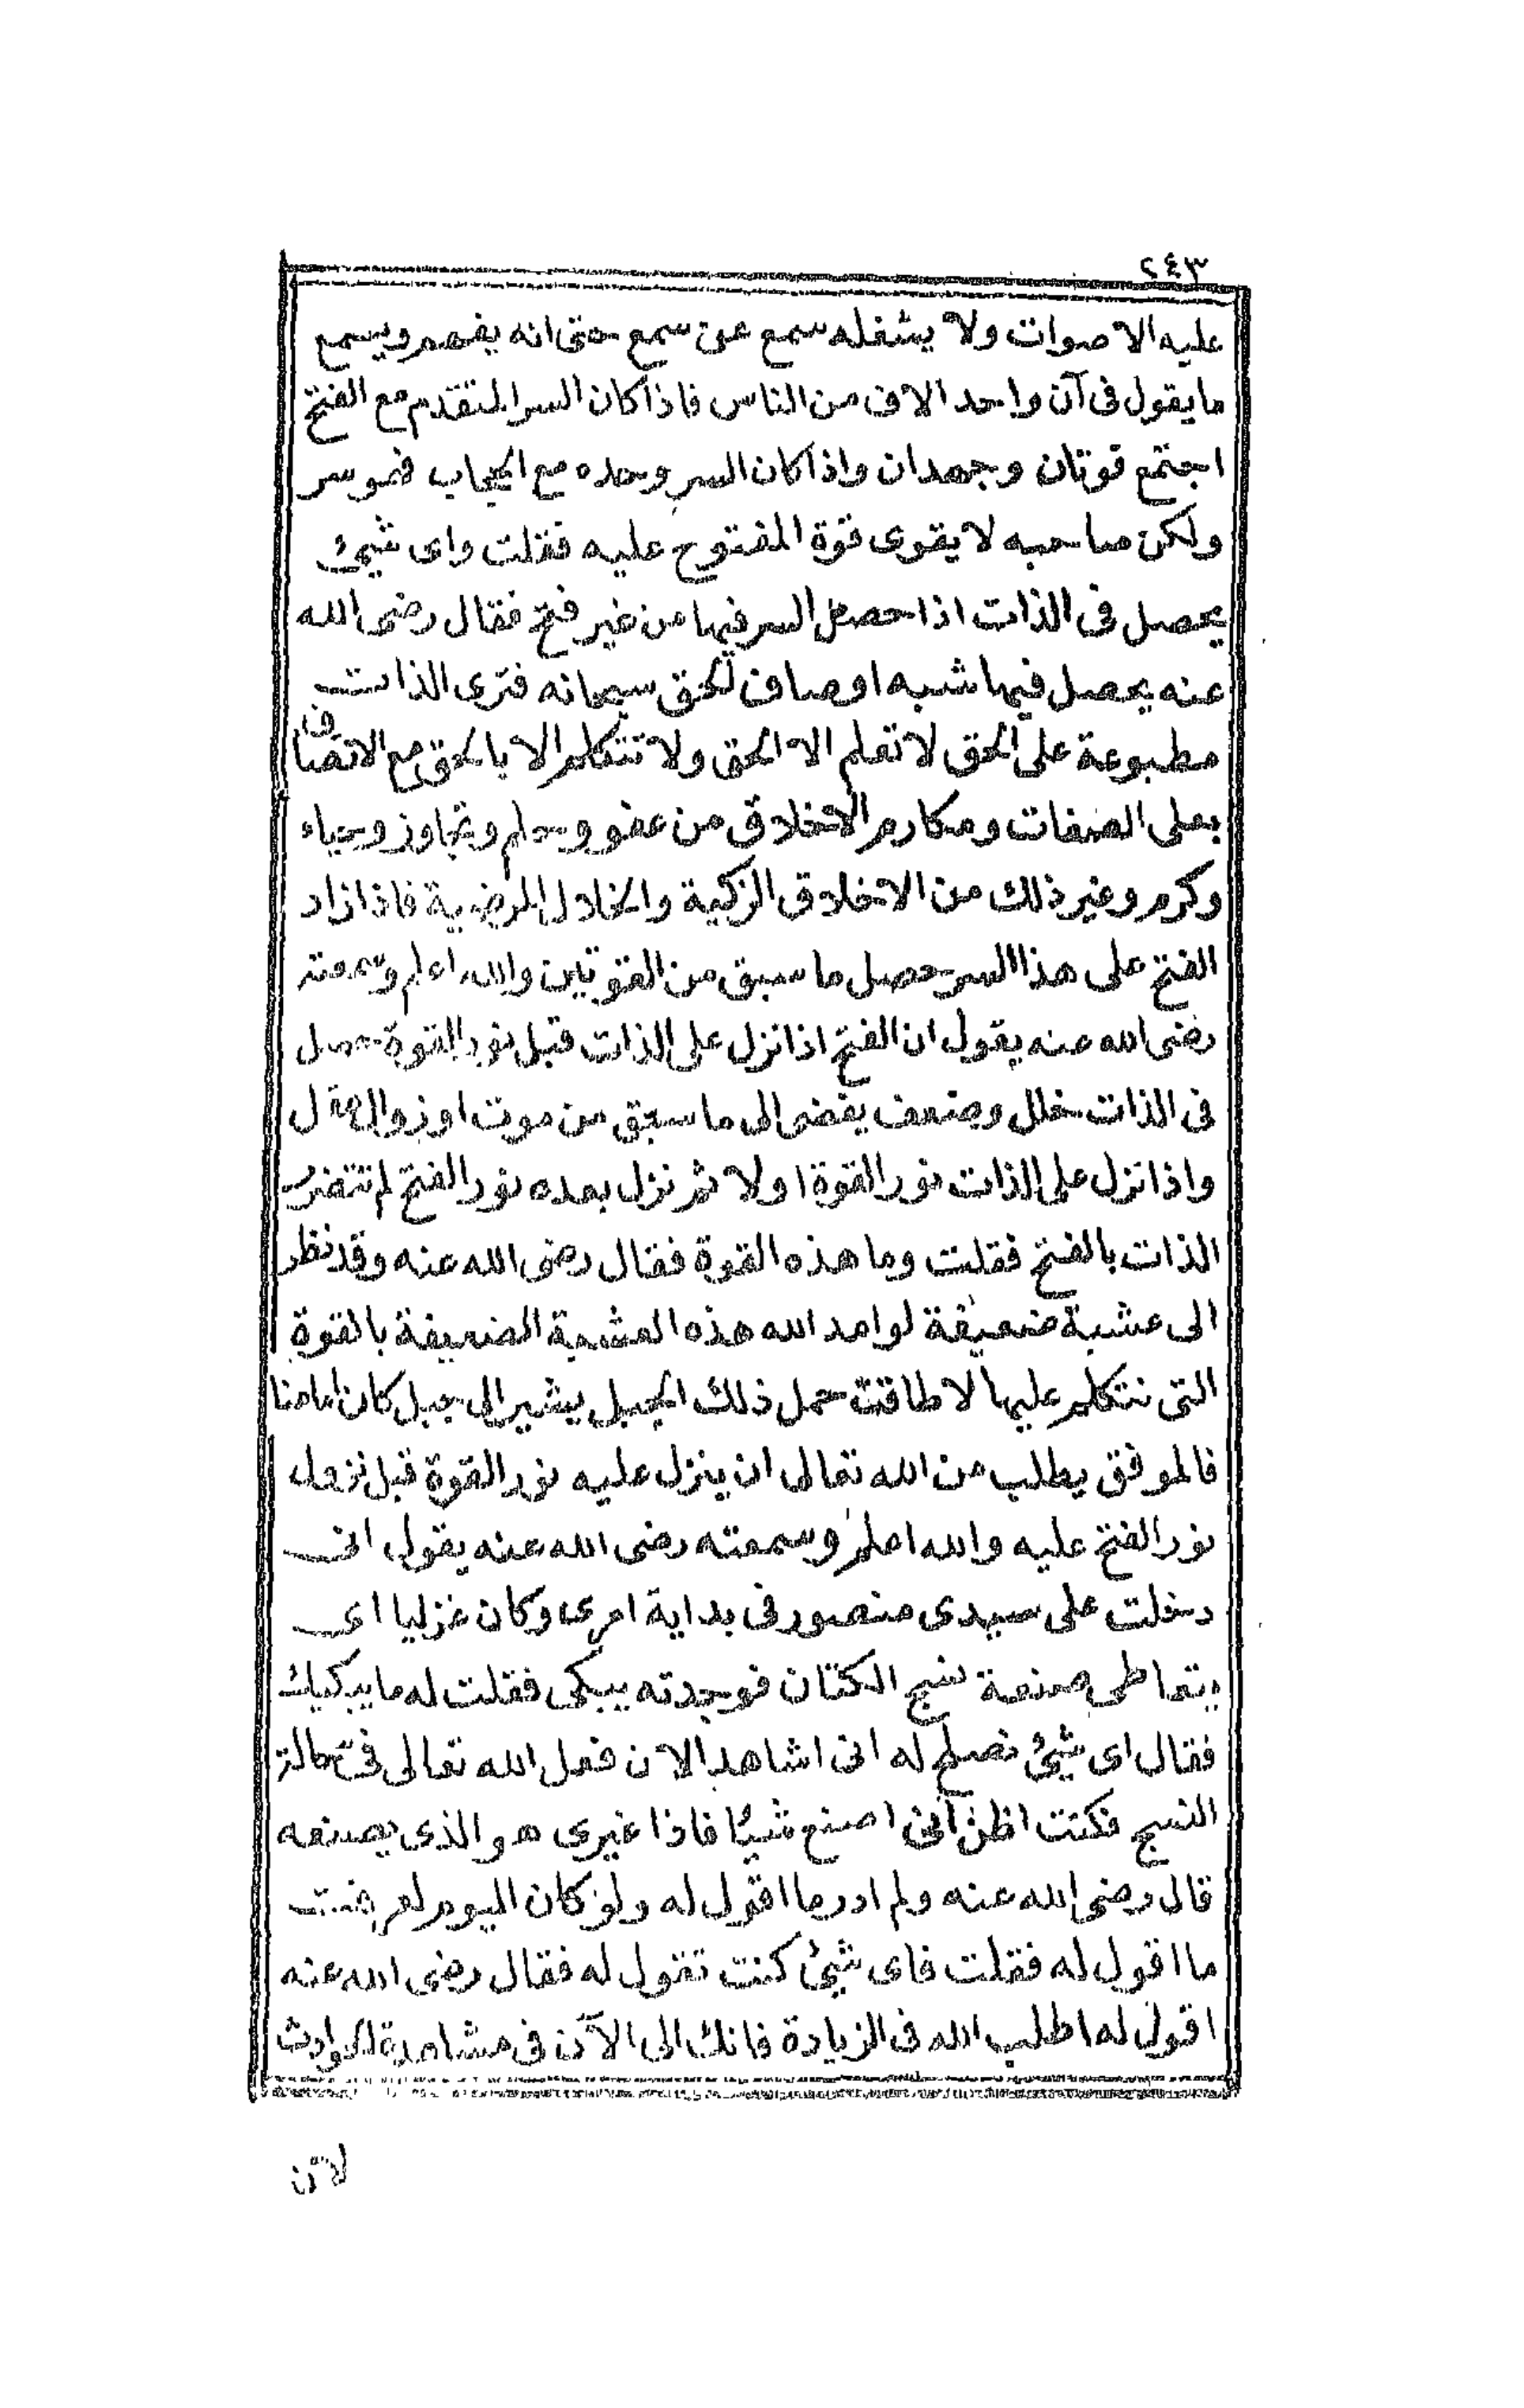 ٢٤٣
عليه الاصوات ولا يشغله سمع عن سمع حتى انه يفهم ويسمع
ما يقول فى آن واحد الاف من الناس فاذا كان السر المتقدم مع الفتح
اجتمع قوتان وجهدان واذا كان السر وحده مع الحجاب فهو سر
ولكن صاحبه لا يقوى قوة المفتوح عليه فقلت واى شيئ
يحصل فى الذات اذا حصل السر فيها من غير فتح فقال رضى الله
عنه يحصل فيها شبه اوصاف للحق سبحانه فترى الذات
مطبوعة على الحق لا تعلم الا الحق ولا تتكلم الا بالحق مع الاتصاف
بعلى الصفات ومكارم الاخلاق من عفو وحلم وتجاوز وحياء
وكرم وغير ذلك من الاخلاق الزكية والخلال المرضية فاذا زاد
الفتح على هذا السر حصل ما سبق من القوتين والله اعلم وسمعته
رضى الله عنه يقول ان الفتح اذا نزل على الذات قبل نور القوة حصل
فى الذات خلل وضعف يفضى الى ما سبق من موت او زوال عقل
واذا نزل على الذات نور القوة اولا ثم نزل بعده نور الفتح لم تتضرر
الذات بالفتح فقلت وما هذه القوة فقال رضى الله عنه وقد نظر
الى عشبة ضعيفة لو امد الله هذه العشبة الضعيفة بالقوة
التى نتكلم عليها لاطاقت حمل ذلك الجبل يشير الى جبل كان امامنا
فالموفق يطلب من الله تعالى ان ينزل عليه نور القوة قبل نزول
نور الفتح عليه والله اعلم وسمعته رضى الله عنه يقول انى
دخلت على سيدى منصور فى بداية امرى وكان غزليا اى
يتعاطى صنعة نسج الكتان فوجدته يبكى فقلت له ما يبكيك
فقال اى شيئ نصلح له انى اشاهد الان فعل الله تعالى فى حالة
النسج فكنت اظن انى اصنع شيئا فاذا غيرى هو الذى يصنعه
قال رضى الله عنه ولم ادر ما اقول له ولو كان اليوم لعرفت
ما اقول له فقلت فاى شيئ كنت تقول له فقال رضى الله عنه
اقول له اطلب الله فى الزيادة فانك الى الآن فى مشاهدة الحوادث
لان